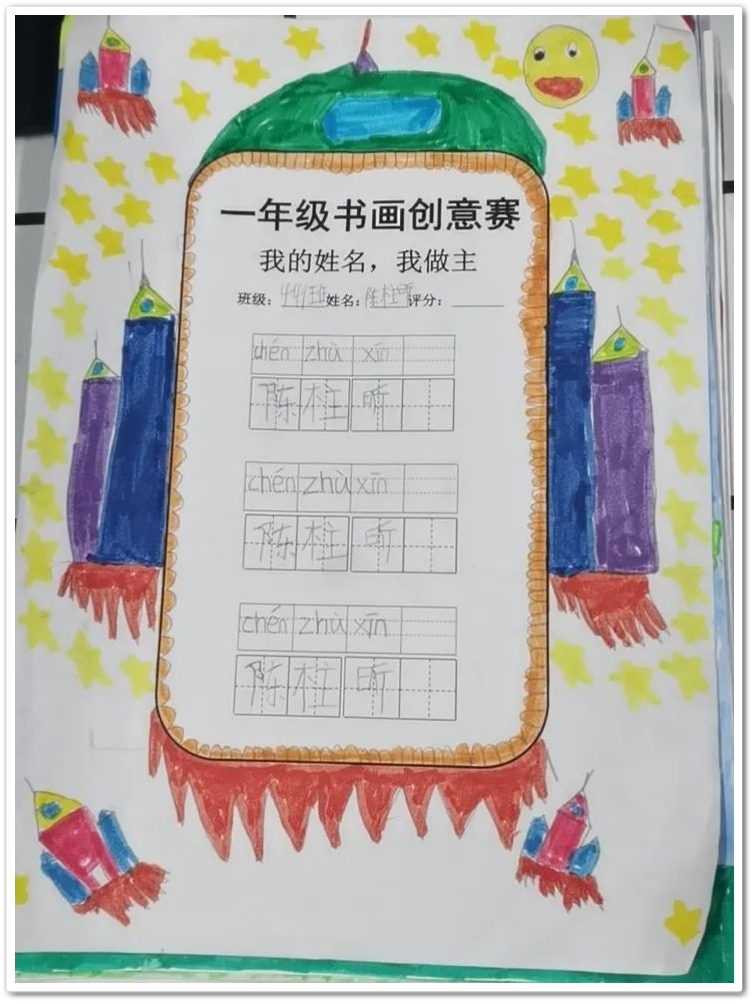 一年级书画创意赛
我的姓名，我做主
班级：441班 姓名：陈柱昕 评分：
chén zhù xīn
陈柱昕
chén zhù xīn
陈柱昕
chén zhù xīn
陈柱昕